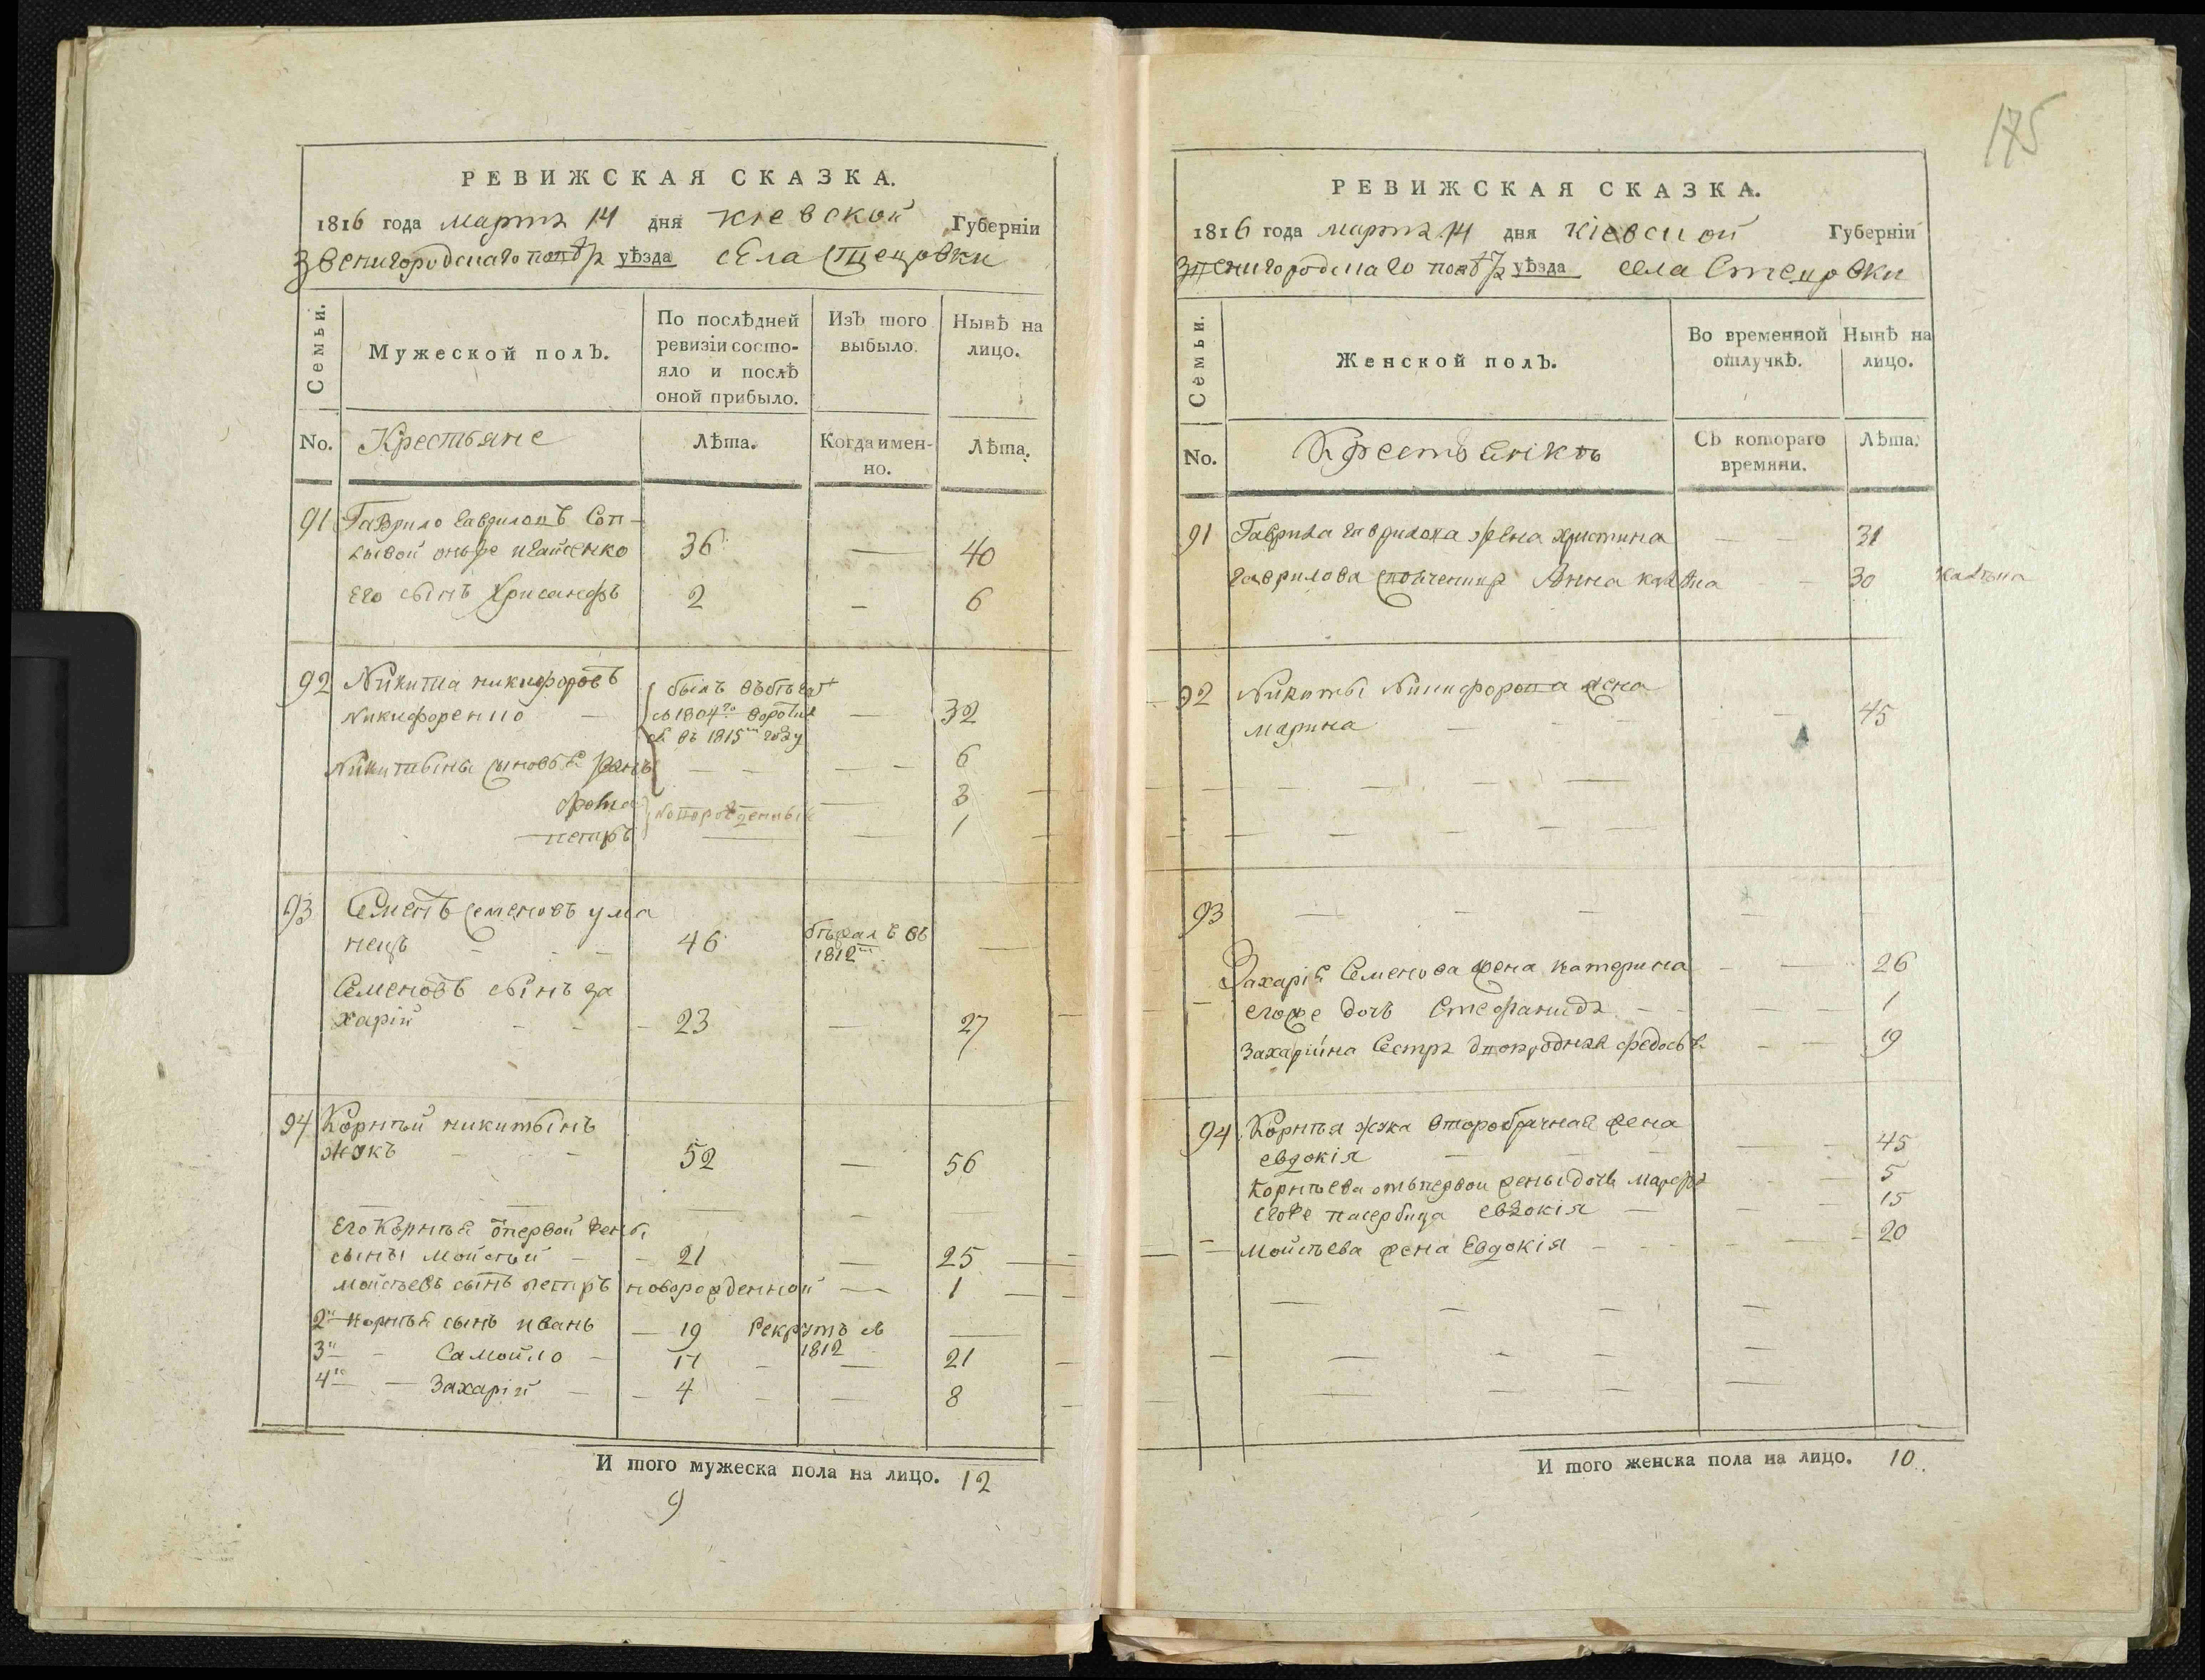 175
РЕВИЖСКАЯ СКАЗКА.
1816 года марта 14 дня Кіевской Губерніи
Звенигородскаго повѣта уѣзда села Стецовки
Семьи.
Мужеской полЪ.
По послѣдней ревизіи состояло и послѣ оной прибыло.
ИзЪ того выбыло.
Нынѣ на лицо.
No. Крестьяне
Лѣта.
Когда именно.
Лѣта.
91 Гаврило Гавриловъ Соп-
36 — 40
Его сынъ Хрисанфъ 2 – 6
92 Никита никифоровъ
Никифоренко —
былъ въ
съ 1804го
въ 1815м году
— 32
Никитины сыновья — — — — 6
— 3
новорожденные
петръ — — 1
93 Семенъ Семеновъ ума
нецъ - - – 46 бѣжалъ въ 1812м —
Семеновъ сынъ за
харій - - – 23 — 27
94 Корнѣй никитинъ
жукъ - - 52 — 56
Его Корнѣя первой жены
сыны Мойсѣй – – 21 — 25
Мойсѣевъ сынъ петръ новорожденной — 1
2й Корнѣя сынъ иванъ — 19 Рекрутъ 1812 —
3й - Самойло – 17 – — 21
4й — Захарій — – 4 – — 8
И того мужеска пола на лицо. 12
9
РЕВИЖСКАЯ СКАЗКА.
1816 года марта 14 дня Кіевской Губерніи
Звенигородскаго повѣта уѣзда села Стецовки
Семьи.
Женской полЪ.
Во временной отлучкѣ.
Нынѣ на лицо.
No.
СЪ котораго времяни.
Лѣта.
91 Гаврила Гаврилова жена христина — — 31
Гаврилова Анна — 30
92 Никиты Никифорова жена
марина — - — 45
93 — - – —
Захарія Семенова жена катерина – — 26
егоже дочь Стефанида – - — — 1
Захарійна Сестра двоюродная федосья – — 19
94 Корнѣя жука второбрачная жена
евдокія — — — — 45
Корнѣева отъ первой жены дочь марфа — 5
егоже пасербица евдокія — – — 15
Мойсѣева жена Евдокія – - - — 20
И того женска пола на лицо. 10